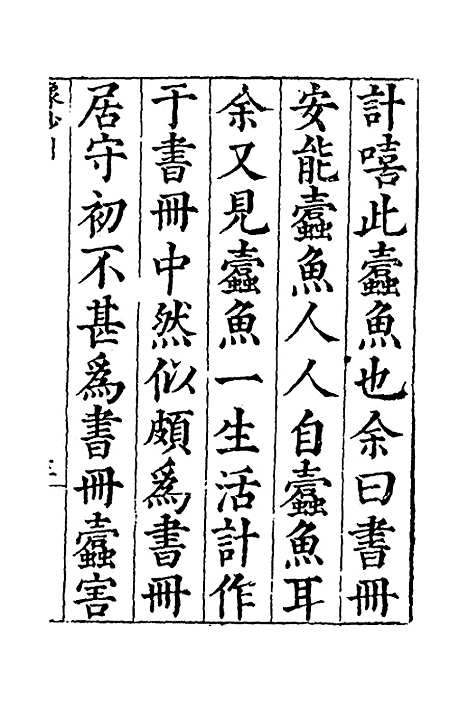 計嘻此蠹魚也余曰書冊
安能蠹魚人人自蠹魚耳
余又見蠹魚一生活計作
于書冊中然似頗爲書冊
居守初不甚爲書冊蠹害